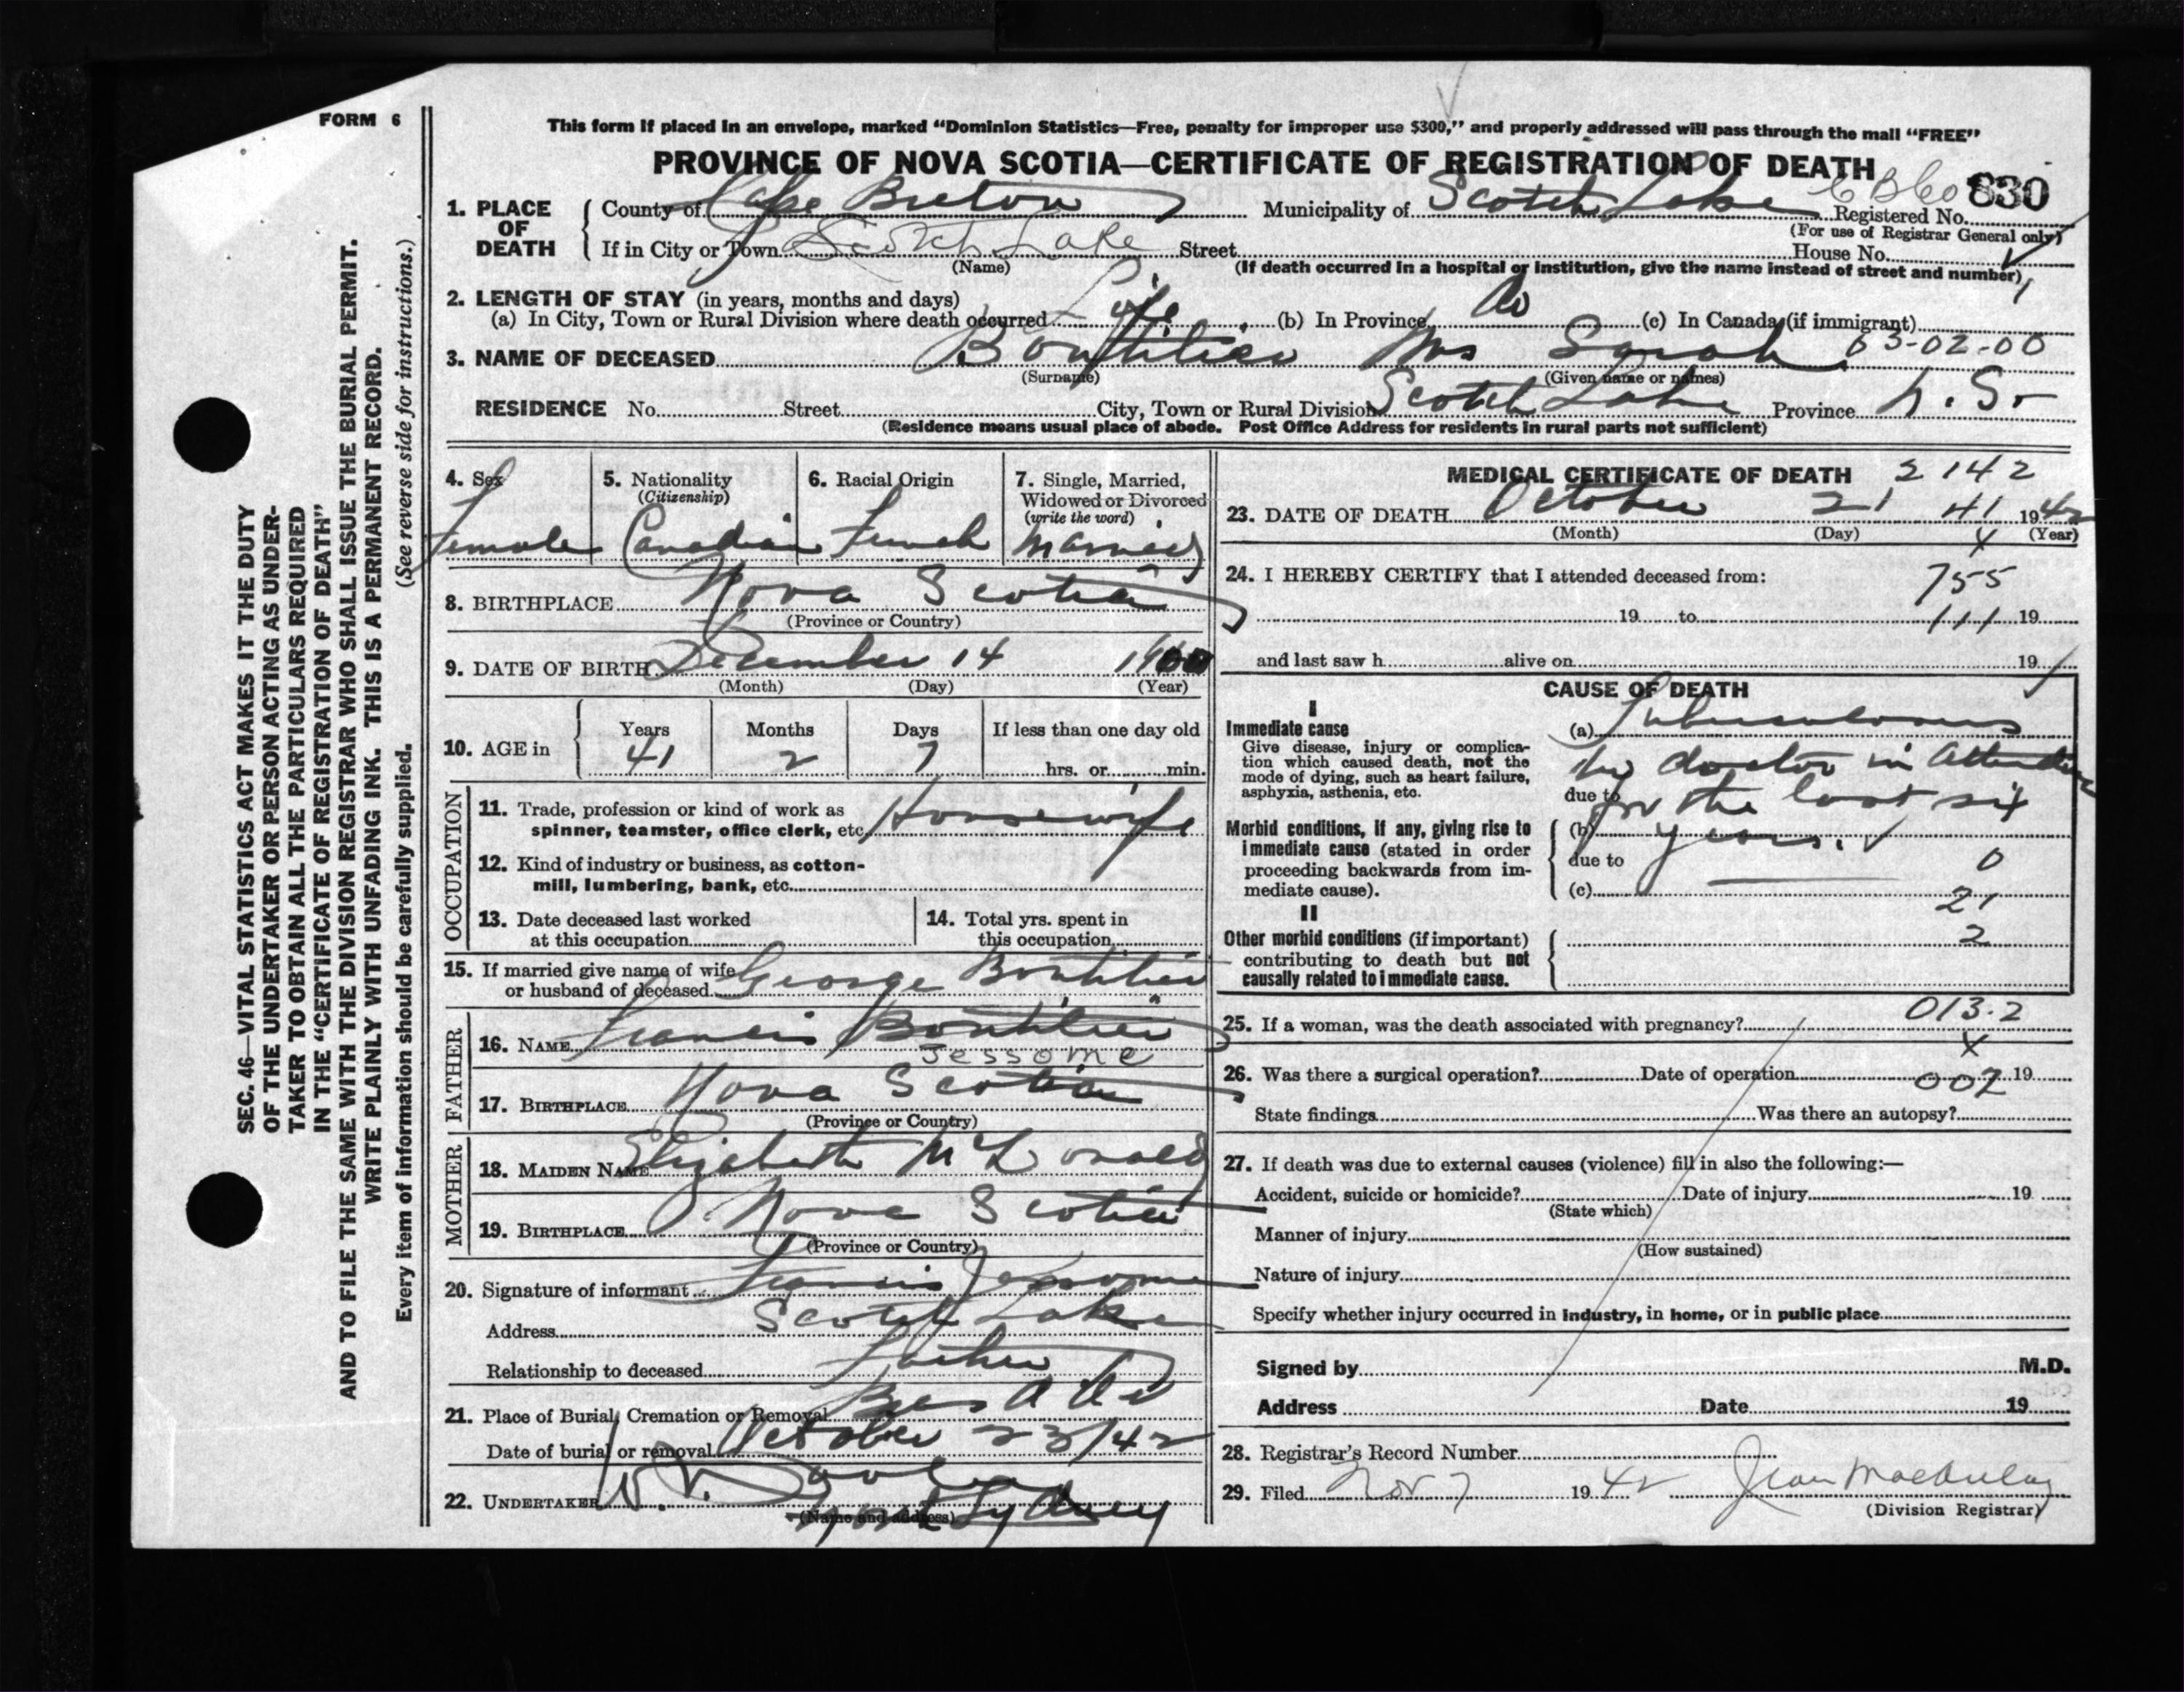 FORM 6
This form if placed in an envelope, marked "Dominion Statistics—Free, penalty for improper use $300," and properly addressed will pass through the mail "FREE"
PROVINCE OF NOVA SCOTIA—CERTIFICATE OF REGISTRATION OF DEATH
830
1. PLACE OF DEATH
County of Cape Breton Municipality of Scotch Lake Registered No.
(For use of Registrar General only)
If in City or Town Scotch Lake Street House No.
(Name) (If death occurred in a hospital or institution, give the name instead of street and number)
2. LENGTH OF STAY (in years, months and days)
(a) In City, Town or Rural Division where death occurred Life (b) In Province do (c) In Canada (if immigrant)
3. NAME OF DECEASED Boutilier Mrs Sarah 03-02-00
(Surname) (Given name or names)
RESIDENCE No. Street City, Town or Rural Division Scotch Lake Province N.S.
(Residence means usual place of abode. Post Office Address for residents in rural parts not sufficient)
4. Sex Female
5. Nationality (Citizenship) Canadian
6. Racial Origin French
7. Single, Married, Widowed or Divorced (write the word) Married
8. BIRTHPLACE Nova Scotia
(Province or Country)
9. DATE OF BIRTH December 14 1900
(Month) (Day) (Year)
10. AGE in Years 41 Months 2 Days 7 If less than one day old hrs. or min.
OCCUPATION
11. Trade, profession or kind of work as spinner, teamster, office clerk, etc. Housewife
12. Kind of industry or business, as cotton-mill, lumbering, bank, etc.
13. Date deceased last worked at this occupation
14. Total yrs. spent in this occupation
15. If married give name of wife or husband of deceased George Boutilier
FATHER
16. NAME Francis Boutilier
Jessome
17. BIRTHPLACE Nova Scotia
(Province or Country)
MOTHER
18. MAIDEN NAME Elizabeth McDonald
19. BIRTHPLACE Nova Scotia
(Province or Country)
20. Signature of informant Francis Jessome
Address Scotch Lake
Relationship to deceased Father
21. Place of Burial, Cremation or Removal
Date of burial or removal October 23/42
22. UNDERTAKER
(Name and address) North Sydney
MEDICAL CERTIFICATE OF DEATH 2142
23. DATE OF DEATH October 21 41 1942
(Month) (Day) (Year)
X
24. I HEREBY CERTIFY that I attended deceased from:
755
19 to 111 19
and last saw h alive on 19
CAUSE OF DEATH
I
Immediate cause
Give disease, injury or complication which caused death, not the mode of dying, such as heart failure, asphyxia, asthenia, etc.
(a) Tuberculosis
No doctor in attendance
due to for the last six
Morbid conditions, if any, giving rise to immediate cause (stated in order proceeding backwards from immediate cause).
(b) years.
due to 0
(c) 21
II
2
Other morbid conditions (if important) contributing to death but not causally related to immediate cause.
25. If a woman, was the death associated with pregnancy? 013.2
X
26. Was there a surgical operation? Date of operation 002 19
State findings Was there an autopsy?
27. If death was due to external causes (violence) fill in also the following:—
Accident, suicide or homicide? Date of injury 19
(State which)
Manner of injury
(How sustained)
Nature of injury
Specify whether injury occurred in industry, in home, or in public place
Signed by M.D.
Address Date 19
28. Registrar's Record Number
29. Filed Nov 7 1942 Jean MacAulay
(Division Registrar)
SEC. 46—VITAL STATISTICS ACT MAKES IT THE DUTY
OF THE UNDERTAKER OR PERSON ACTING AS UNDER-
TAKER TO OBTAIN ALL THE PARTICULARS REQUIRED
IN THE "CERTIFICATE OF REGISTRATION OF DEATH"
AND TO FILE THE SAME WITH THE DIVISION REGISTRAR WHO SHALL ISSUE THE BURIAL PERMIT.
WRITE PLAINLY WITH UNFADING INK. THIS IS A PERMANENT RECORD.
Every item of information should be carefully supplied. (See reverse side for instructions.)